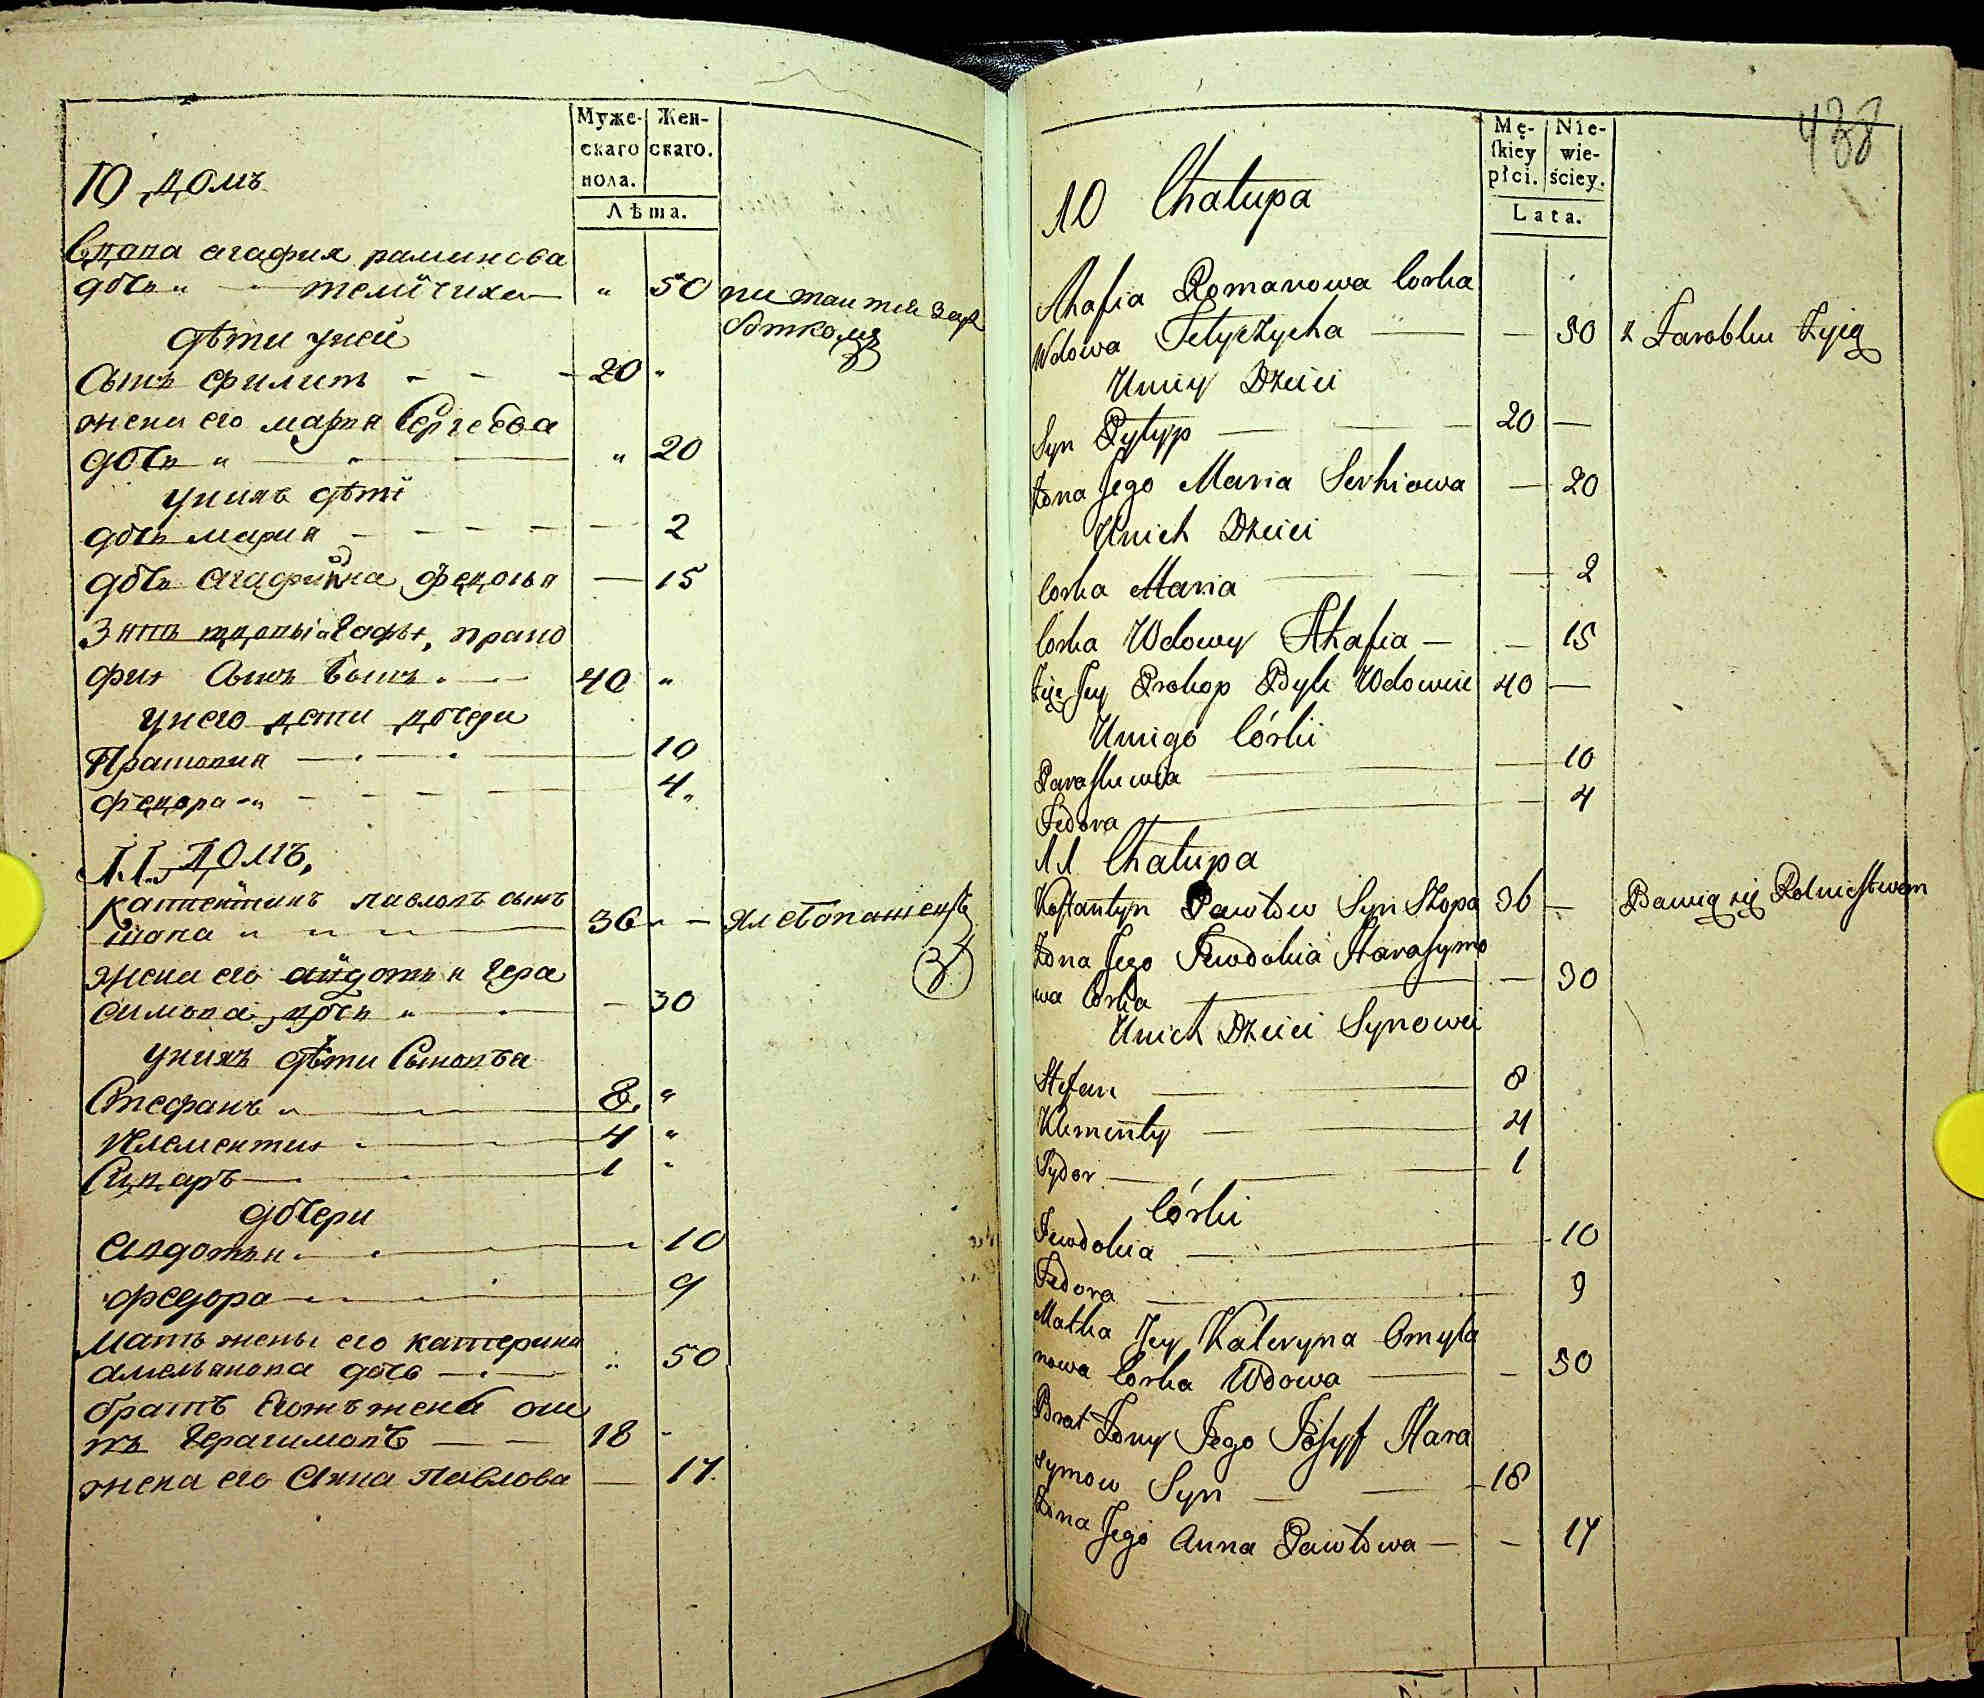 Муже-
скаго
пола.
Жен-
скаго.
Лѣта.
10 домъ
Вдова агафия раминова
дочь " — телычиха — " 50 питаитса зар
боткомъ
дѣти унеи
Сынъ филипъ - - - 20 "
жена его мария Сергеева
дочь " — " 20
унихъ дѣти
дочь мария - - - - — 2
дочь агафиина федосья — 15
Зять вдовы агафьи, проко
фия Сынъ быкъ . — 40 "
унего дети дочери
Прасковия — . — . — 10
федора - " - - - - 4 "
11 домъ,
Канстентинъ павловъ сынъ
шопа " " " — 36 " — хлебопашенствъ
жена его авдотья Гера
симова дочь " — — 30
унихъ дѣти Сыновья
Стефанъ " — 8. "
Клементия — 4 "
Сидаръ — 1 "
дочери
авдотья — 10
федора — 9
Мать жены его катерина
амельянова дочь — . — " 50
братъ Егожъ жены оси
пъ Герасимовъ — — 18 -
жена его Анна Павлова — 17.
438
Mę-
skiey
płci.
Nie-
wie-
ściey.
Lata.
10 Chałupa
Ahafia Romanowa Corka
Wdowa Tetyczycha — — 50 z Zarobku Żyią
Uniey Dzieci
Syn Pylyp — — — 20 —
Żona Jego Maria Serhiowa — 20
Unich Dzieci
Corka Maria — — — 2
Corka Wdowy Ahafia — — 15
Zięc Jey Prokop Byk Wdowiec 40 —
Uniego Córki
Paraskiewia — — 10
Fedora — — 4
11 Chałupa
Kostantyn Pawłow Syn Szopa 36 — Bawią się Rolnictwem
Żona Jego Jewdokia Harasymo
wa Corka — — 30
Unich Dzieci Synowei
Stefan — 8
Klimenty — — 4
Sydor — — 1
Córki
Jewdokia — — 10
Fedora — — 9
Matka Jey Kateryna Omyla
nowa Corka Wdowa — — 50
Brat Żony Jego Josyf Hara
symow Syn — — -18
Żona Jego Anna Pawłowa — - 17